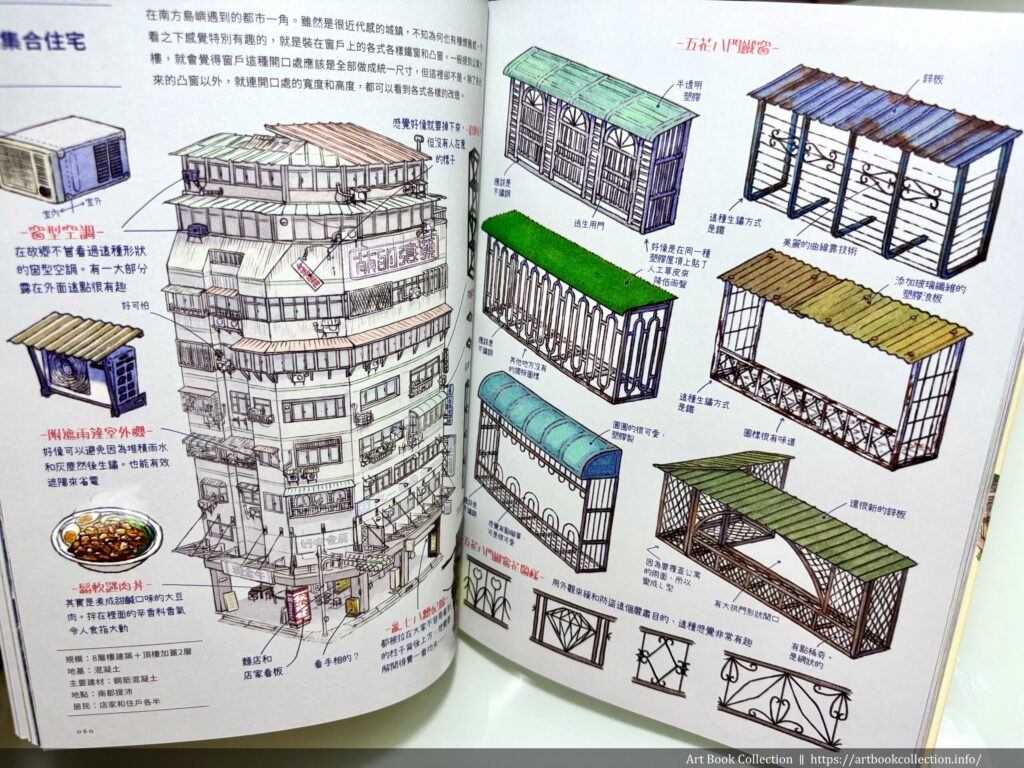 集合住宅
在南方島嶼遇到的都市一角。雖然是很近代感的城鎮，不知為何也有種懷舊感。
看之下感覺特別有趣的，就是裝在窗戶上的各式各樣鐵窗和凸窗。一般提到公寓大
樓，就會覺得窗戶這種開口處應該是全部做成統一尺寸，但這裡卻不是。除了外
來的凸窗以外，就連開口處的寬度和高度，都可以看到各式各樣的改造。
室內
室外
-窗型空調-
在故鄉不曾看過這種形狀
的窗型空調。有一大部分
露在外面這點很有趣
好可怕
-附遮雨篷室外機-
好像可以避免因為堆積雨水
和灰塵然後生鏽。也能有效
遮陽來省電
-鬆軟謎肉丼-
其實是煮成甜鹹口味的大豆
肉。拌在裡面的辛香料香氣
令人食指大動
規模：8層樓建築＋頂樓加蓋2層
地基：混凝土
主要建材：鋼筋混凝土
地點：南都提沛
居民：店家和住戶各半
060
感覺好像就要掉下來，
但沒有人在意
的樣子
麵店和
店家看板
看手相的？
都被拉在大家不容易看
的柱子背後上方，感覺要
解開得費一番功夫
-五花八門鐵窗-
半透明
塑膠
應該是
不鏽鋼
逃生用門
鋅板
這種生鏽方式
是鐵
美麗的曲線靠技術
好像是在同一種
塑膠屋頂上黏了
人工草皮來
降低雨聲
應該是
不鏽鋼
其他地方沒有
的獨特圖樣
添加玻璃纖維的
塑膠浪板
這種生鏽方式
是鐵
圖樣很有味道
圓圓的很可愛，
塑膠製
不鏽鋼
感覺有點礙事
可是很可愛
還很新的鋅板
因為要覆蓋公寓
的兩面，所以
變成L型
有大拱門形狀開口
有點稀奇，
是網狀的
用外觀來緩和防盜這個嚴肅目的，這種感覺非常有趣
Art Book Collection || https://artbookcollection.info/